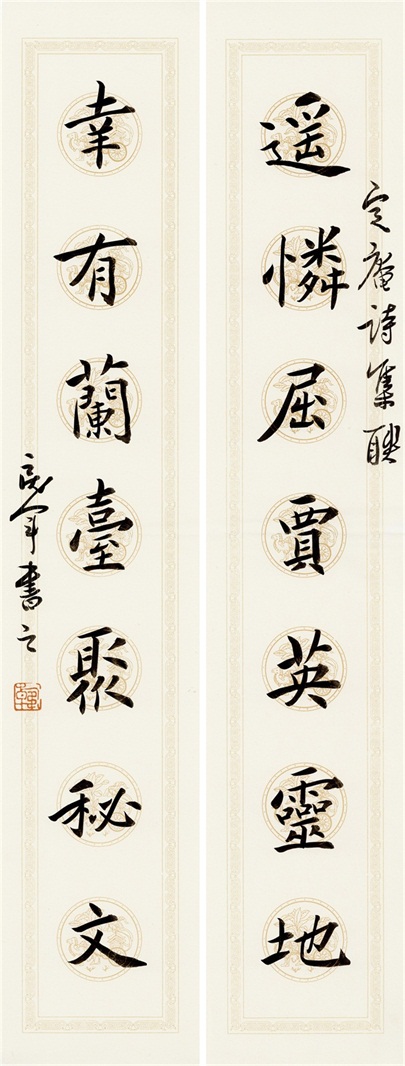 定庵詩集聯
遥憐屈賈英靈地
幸有蘭臺聚秘文
書之